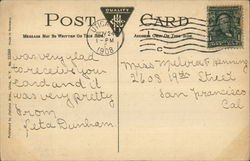 POST CARD
QUALITY
MESSAGE MAY BE WRITTEN ON THIS SIDE
ADDRESS ONLY ON THIS SIDE
NOV 24
1-PM
1908
was very glad
to receive your
card and it
was very pretty
from
Leta Dunham
Miss Melvia
2608 19th Street
San Francisco
Cal